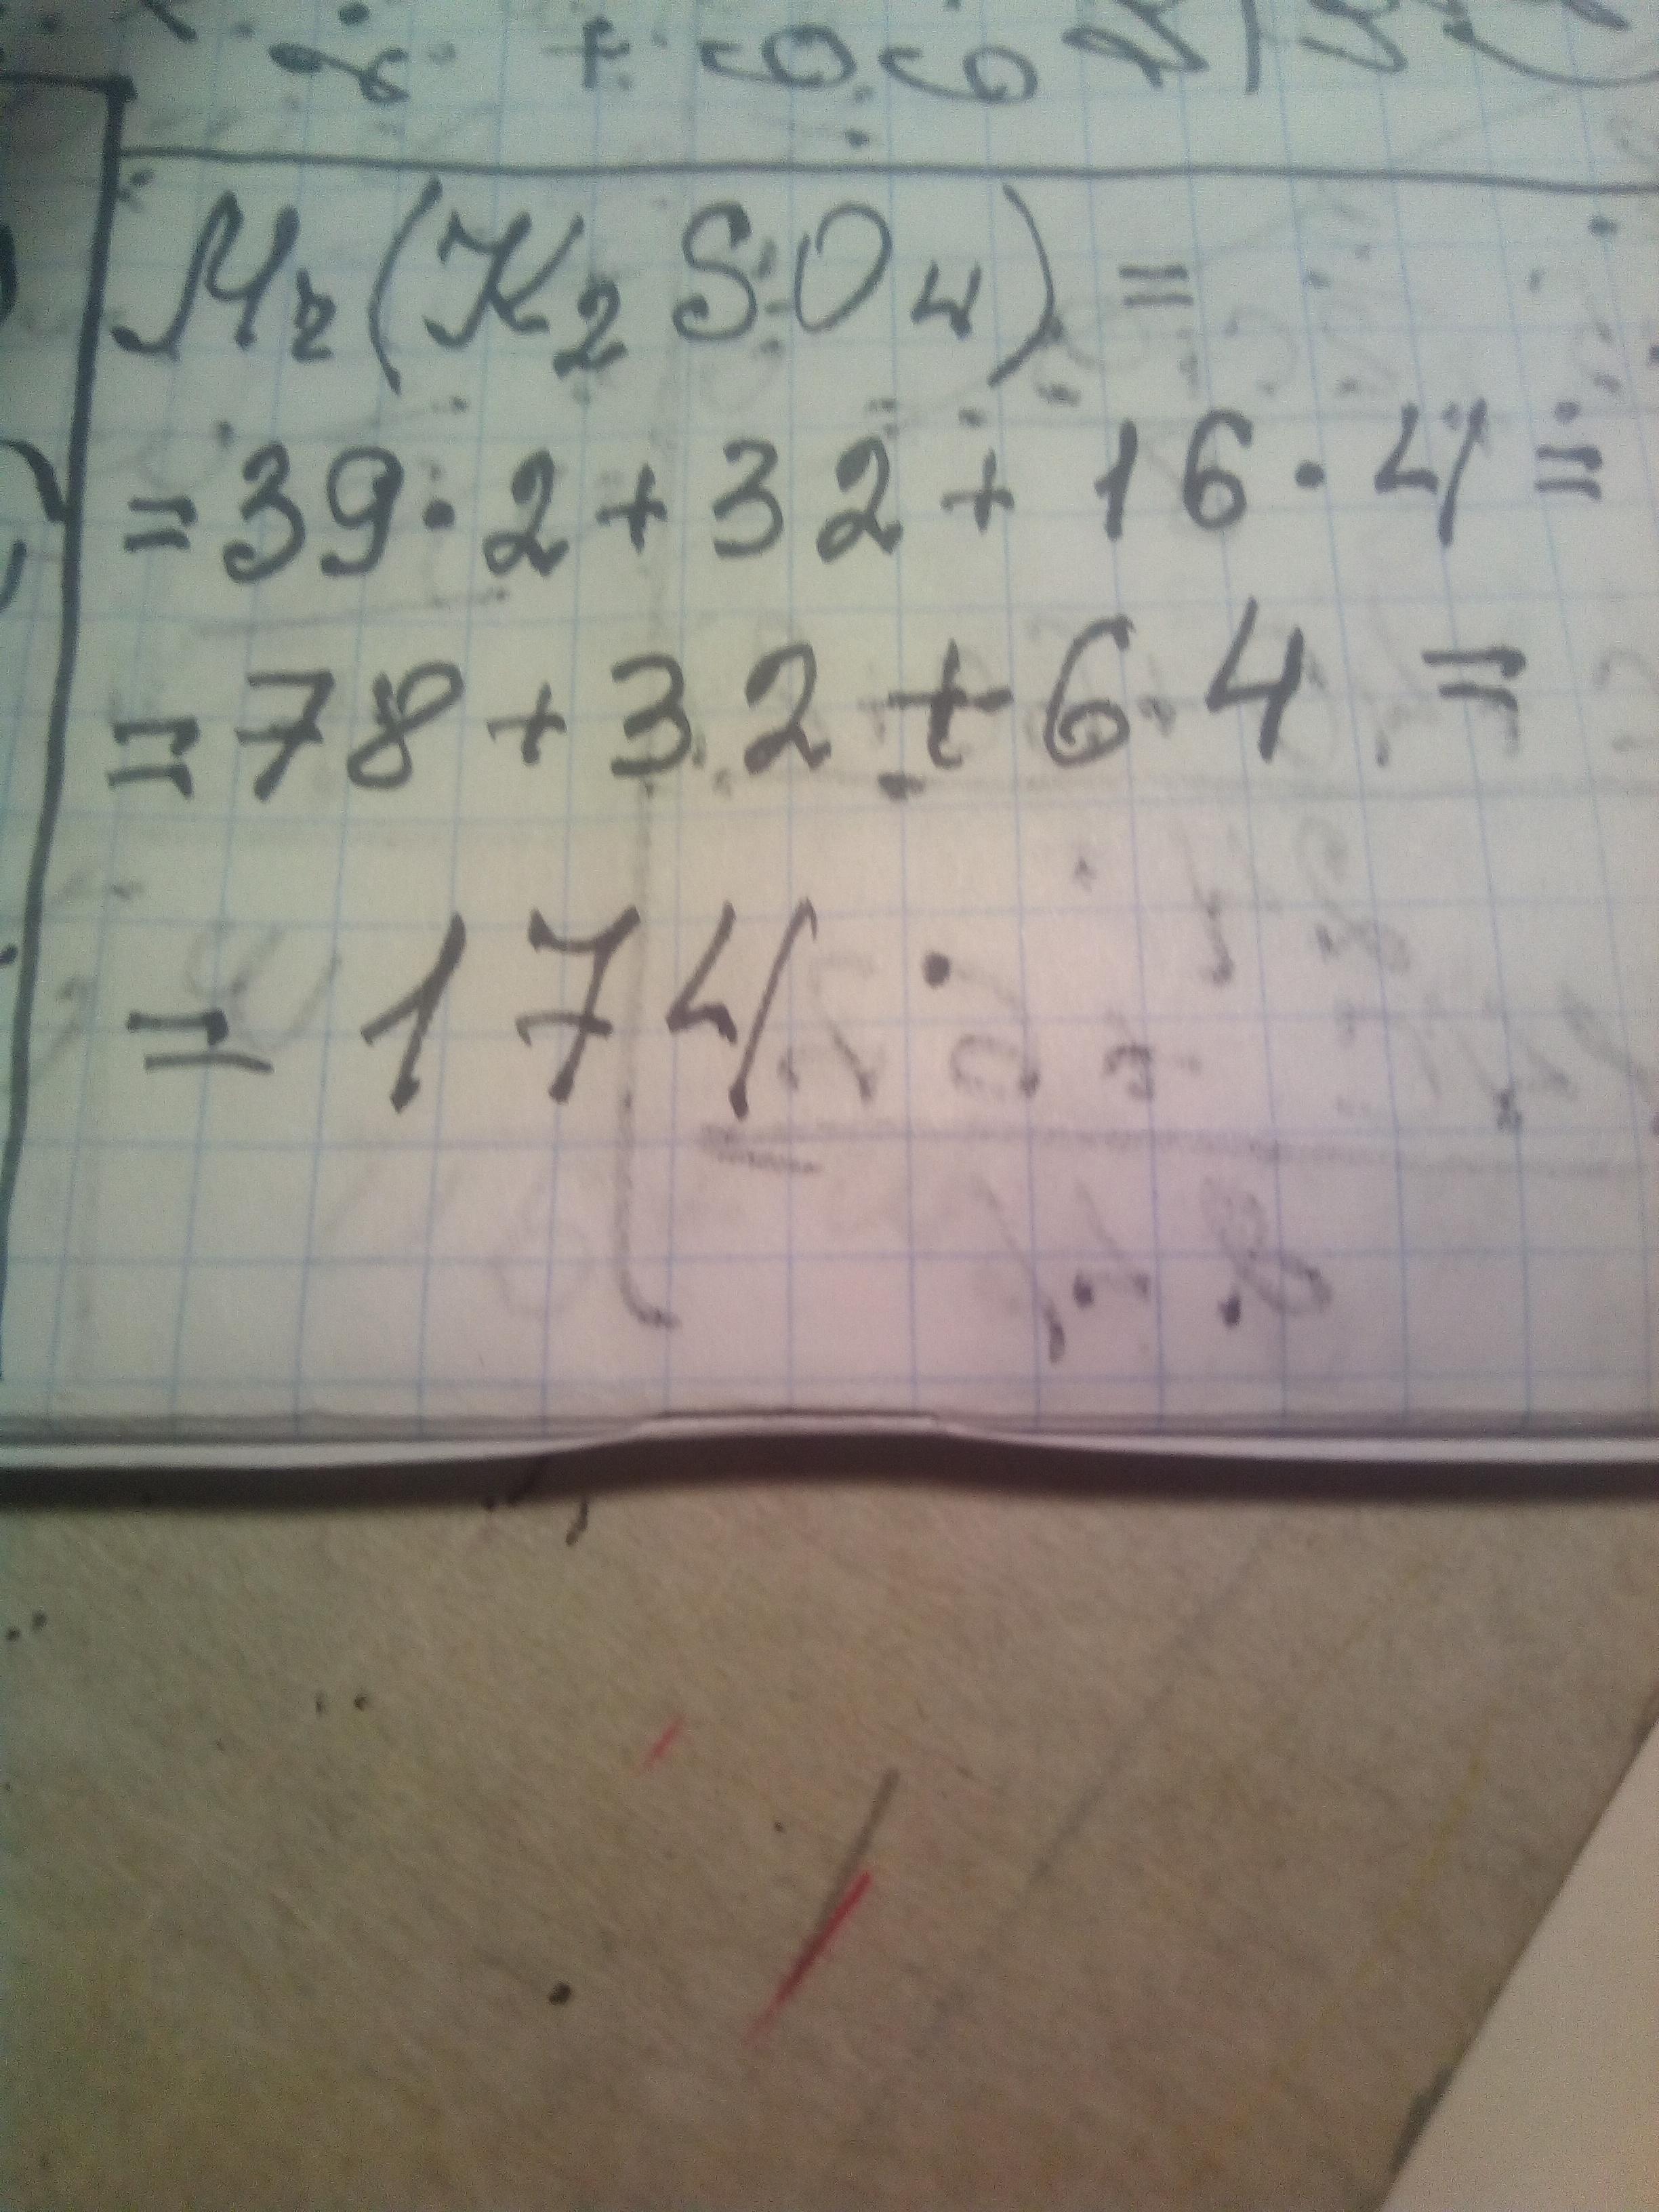 Mr(K₂SO₄) =
= 39 · 2 + 32 + 16 · 4 =
= 78 + 32 + 64 =
= 174.